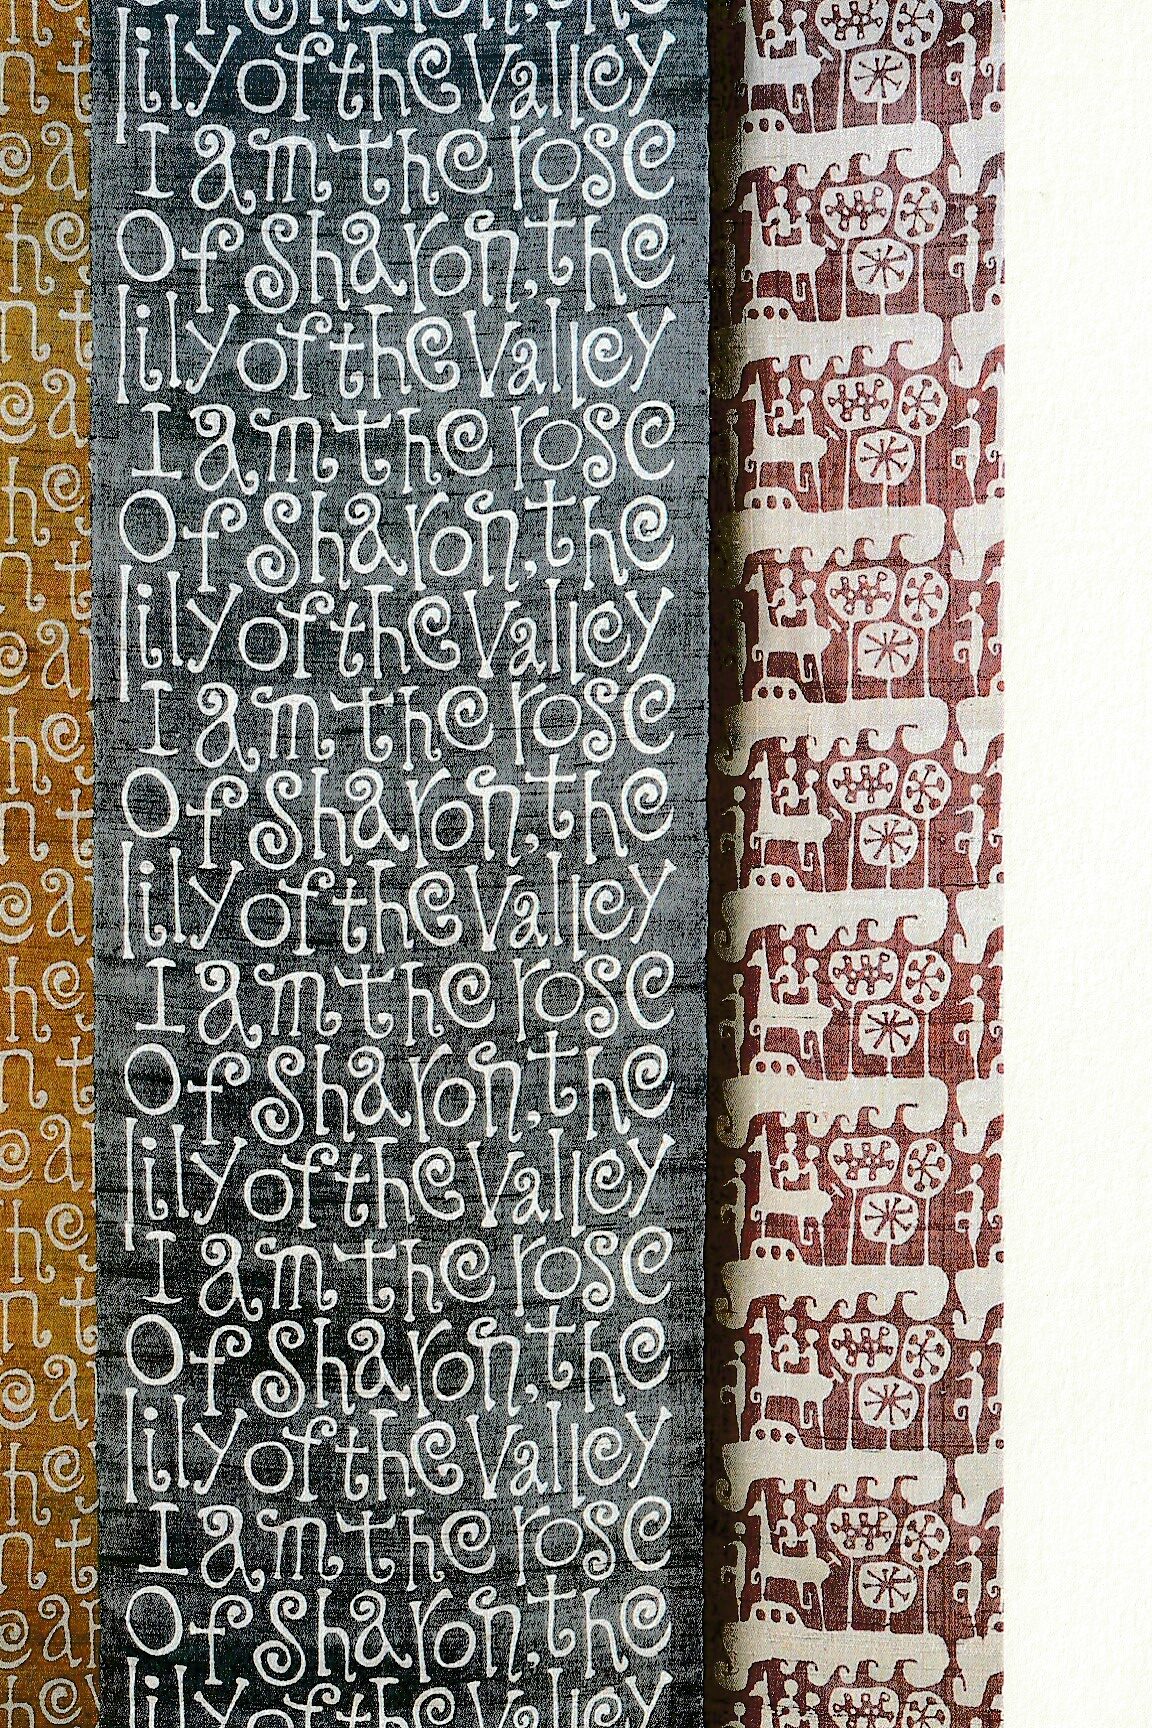 Of Sharon, the
lily of the Valley
I am the rose
Of Sharon, the
lily of the Valley
I am the rose
Of Sharon, the
lily of the Valley
I am the rose
Of Sharon, the
lily of the Valley
I am the rose
Of Sharon, the
lily of the Valley
I am the rose
Of Sharon, the
lily of the Valley
I am the rose
Of Sharon, the
lily of the Valley